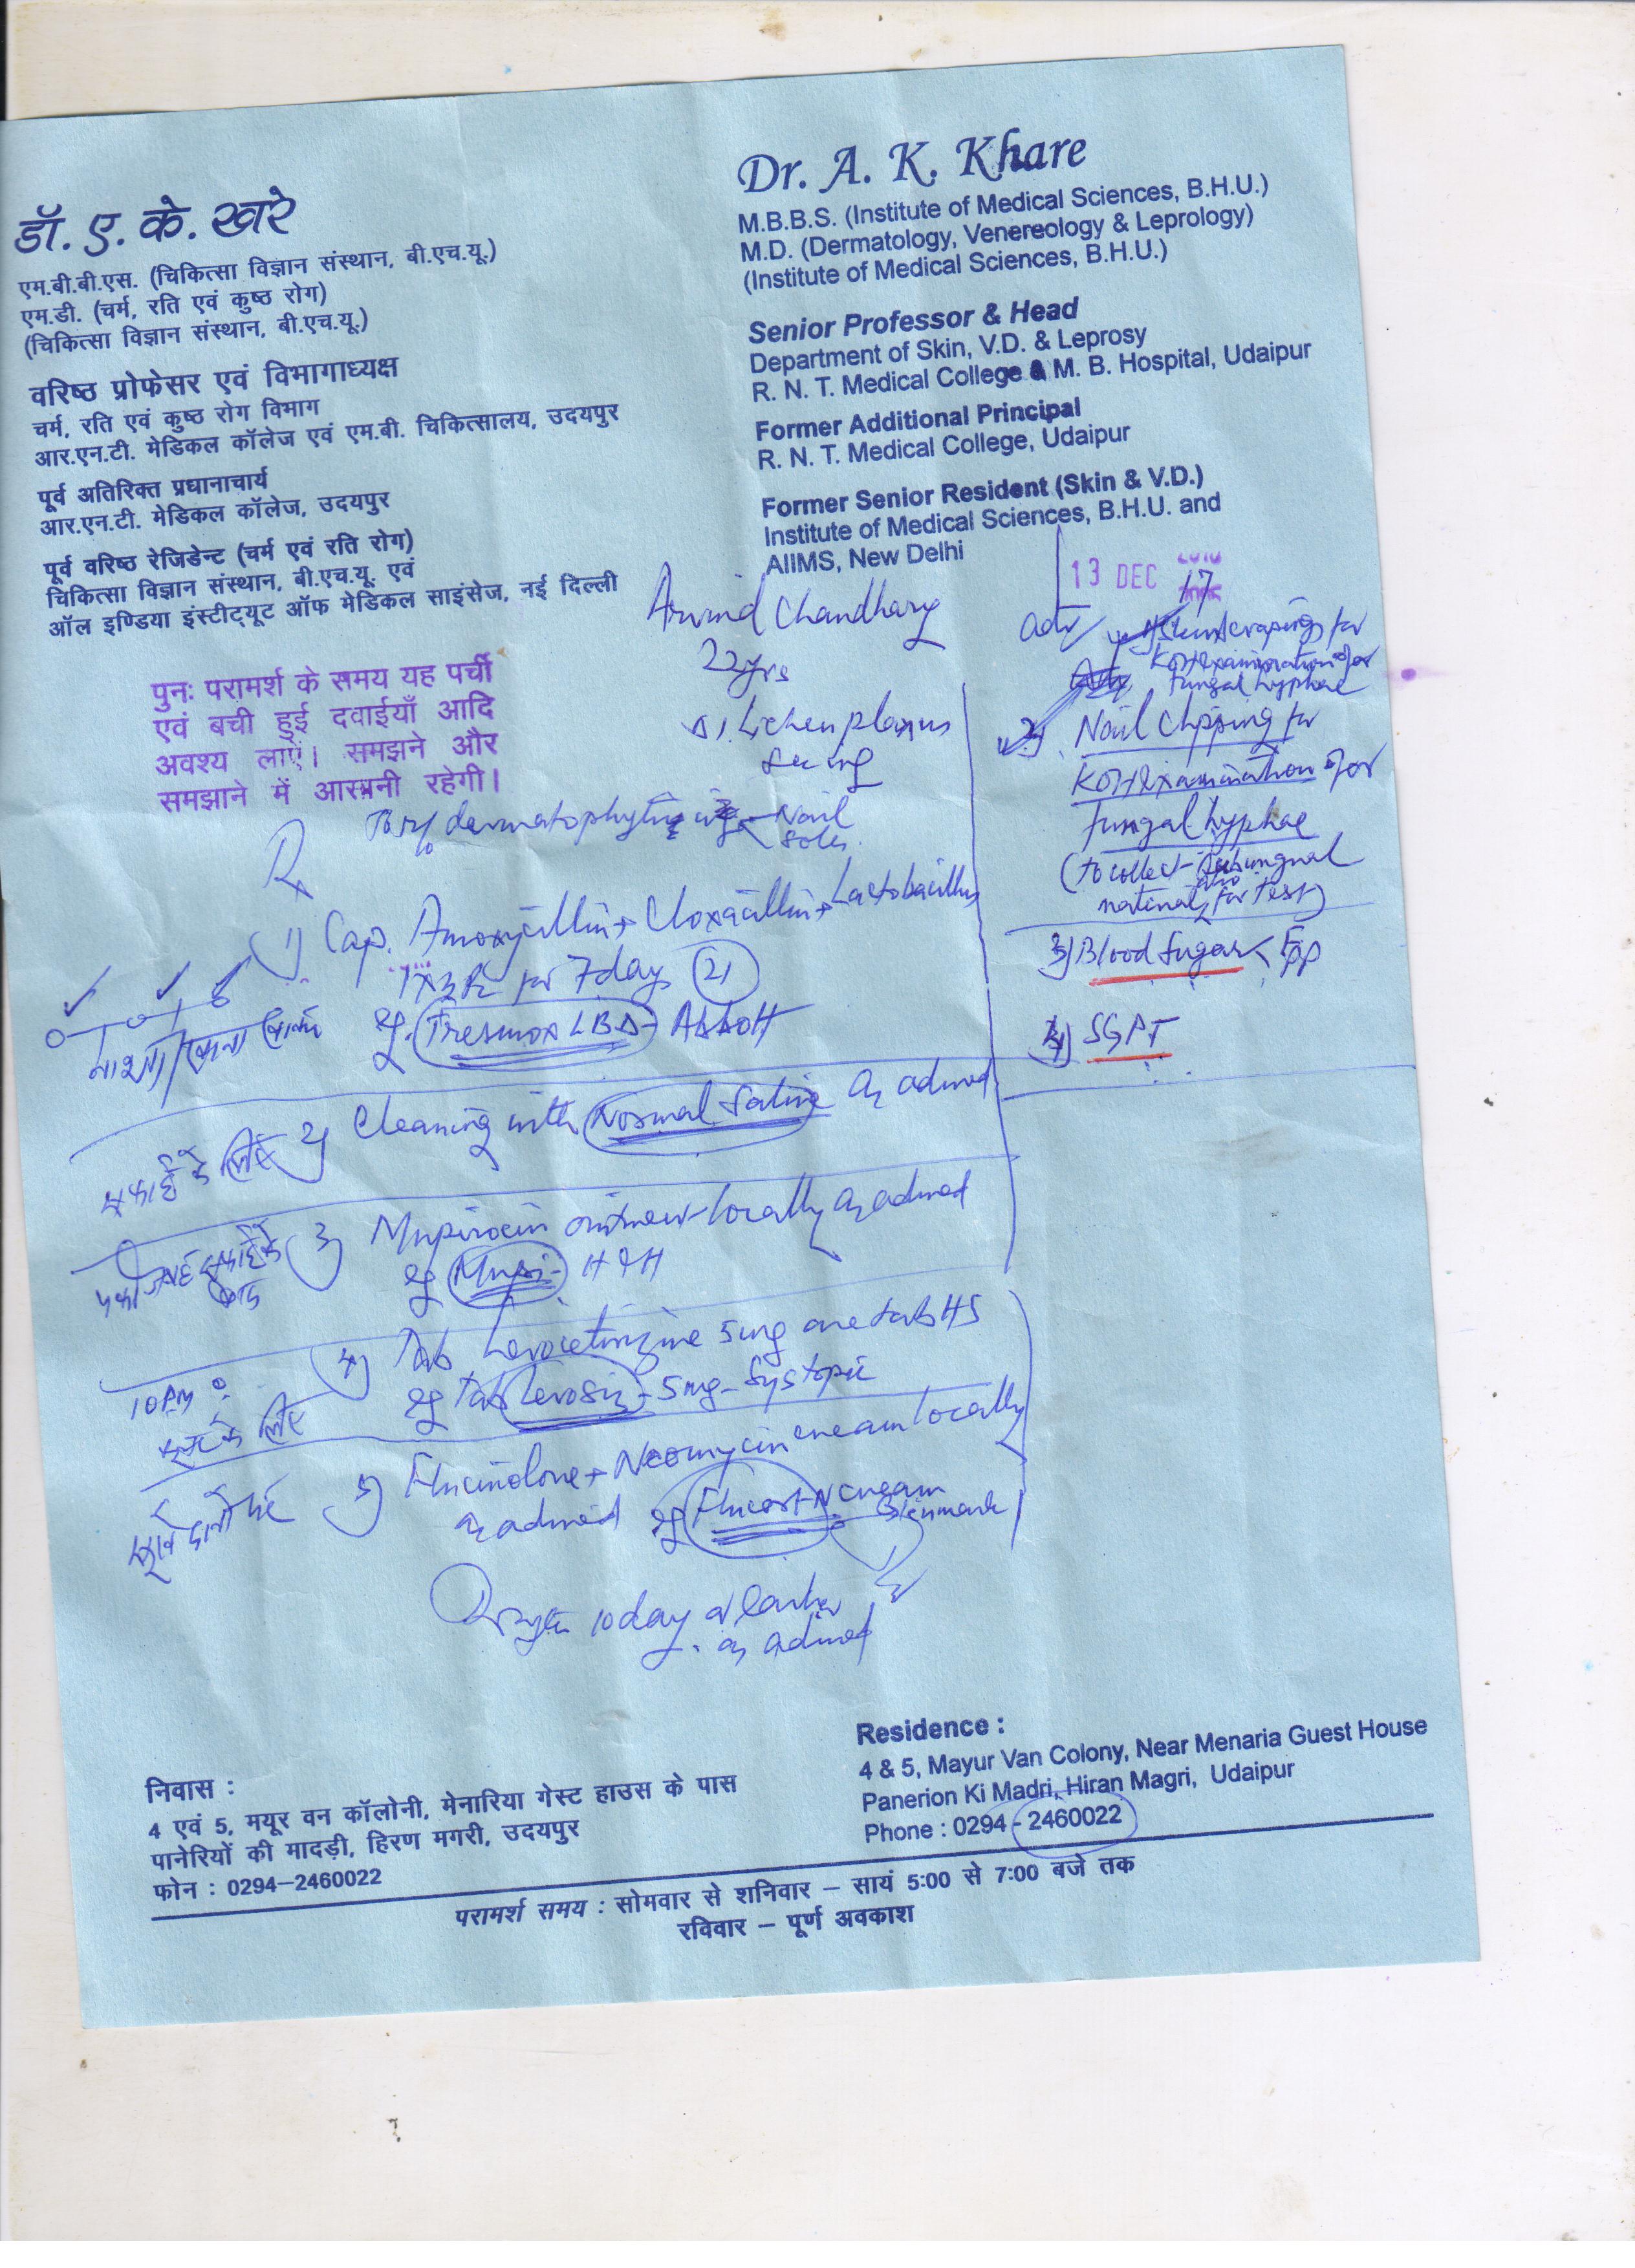 डॉ. ए. के. खरे
एम.बी.बी.एस. (चिकित्सा विज्ञान संस्थान, बी.एच.यू.)
एम.डी. (चर्म, रति एवं कुष्ठ रोग)
(चिकित्सा विज्ञान संस्थान, बी.एच.यू.)
वरिष्ठ प्रोफेसर एवं विभागाध्यक्ष
चर्म, रति एवं कुष्ठ रोग विभाग
आर.एन.टी. मेडिकल कॉलेज एवं एम.बी. चिकित्सालय, उदयपुर
पूर्व अतिरिक्त प्रधानाचार्य
आर.एन.टी. मेडिकल कॉलेज, उदयपुर
पूर्व वरिष्ठ रेजिडेन्ट (चर्म एवं रति रोग)
चिकित्सा विज्ञान संस्थान, बी.एच.यू. एवं
ऑल इण्डिया इंस्टीट्यूट ऑफ मेडिकल साइंसेज, नई दिल्ली
Dr. A. K. Khare
M.B.B.S. (Institute of Medical Sciences, B.H.U.)
M.D. (Dermatology, Venereology & Leprology)
(Institute of Medical Sciences, B.H.U.)
Senior Professor & Head
Department of Skin, V.D. & Leprosy
R. N. T. Medical College & M. B. Hospital, Udaipur
Former Additional Principal
R. N. T. Medical College, Udaipur
Former Senior Resident (Skin & V.D.)
Institute of Medical Sciences, B.H.U. and
AIIMS, New Delhi
13 DEC 17
पुनः परामर्श के समय यह पर्ची
एवं बची हुई दवाईयाँ आदि
अवश्य लाऐं। समझने और
समझाने में आसानी रहेगी।
Arvind Chaudhary
22yrs
Lichen planus
dermatophyti Nail
Soles
adv
Skin scrapings for
KOH examination for
fungal hyphae
2) Nail clipping for
KOH examination for
fungal hyphae
(to collect subungual
material also for test)
3) Blood Sugar < F PP
4) SGPT
Rx
1) Cap. Amoxycillin + Cloxacillin + Lactobacillus
1x3 for 7 day (21)
eg. Tresmox LBD - Abbott
नाश्ता/खाना
2) Cleaning with Normal Saline as advised
सफाई के लिए
3) Mupirocin ointment locally as advised
eg Mupi - H & H
सफाई के बाद
4) Tab Levocetirizine 5mg one tab HS
eg Tab Levosiz - 5mg - Systopic
10 PM
के लिए
5) Flucinolone + Neomycin cream locally
as advised eg Flucort-N cream
Glenmark
10 day
as advised
Residence :
4 & 5, Mayur Van Colony, Near Menaria Guest House
Panerion Ki Madri, Hiran Magri, Udaipur
Phone : 0294 - 2460022
निवास :
4 एवं 5, मयूर वन कॉलोनी, मेनारिया गेस्ट हाउस के पास
पानेरियों की मादड़ी, हिरण मगरी, उदयपुर
फोन : 0294-2460022
परामर्श समय : सोमवार से शनिवार – सायं 5:00 से 7:00 बजे तक
रविवार – पूर्ण अवकाश